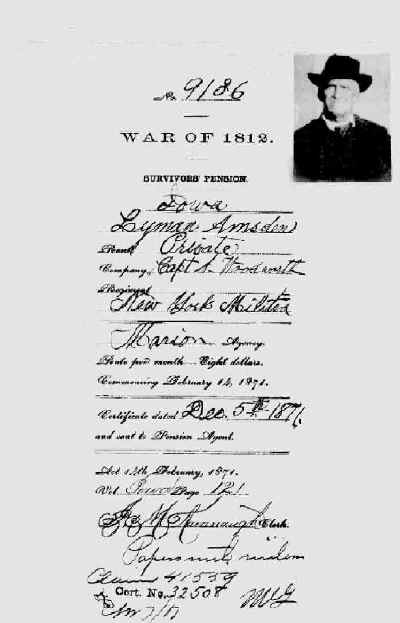 No. 9186
WAR OF 1812.
SURVIVORS' PENSION.
Iowa
Lyman Amsden
Rank, Private
Company, Capt S. Woodworth
Regiment
New York Militia
Marion Agency.
Rate per month Eight dollars.
Commencing February 14, 1871.
Certificate dated Dec. 5th 1871,
and sent to Pension Agent.
Act 14th February, 1871.
Vol. Page 121
Kavanaugh Clerk.
Papers with
Claim 41539
Cert. No. 32508